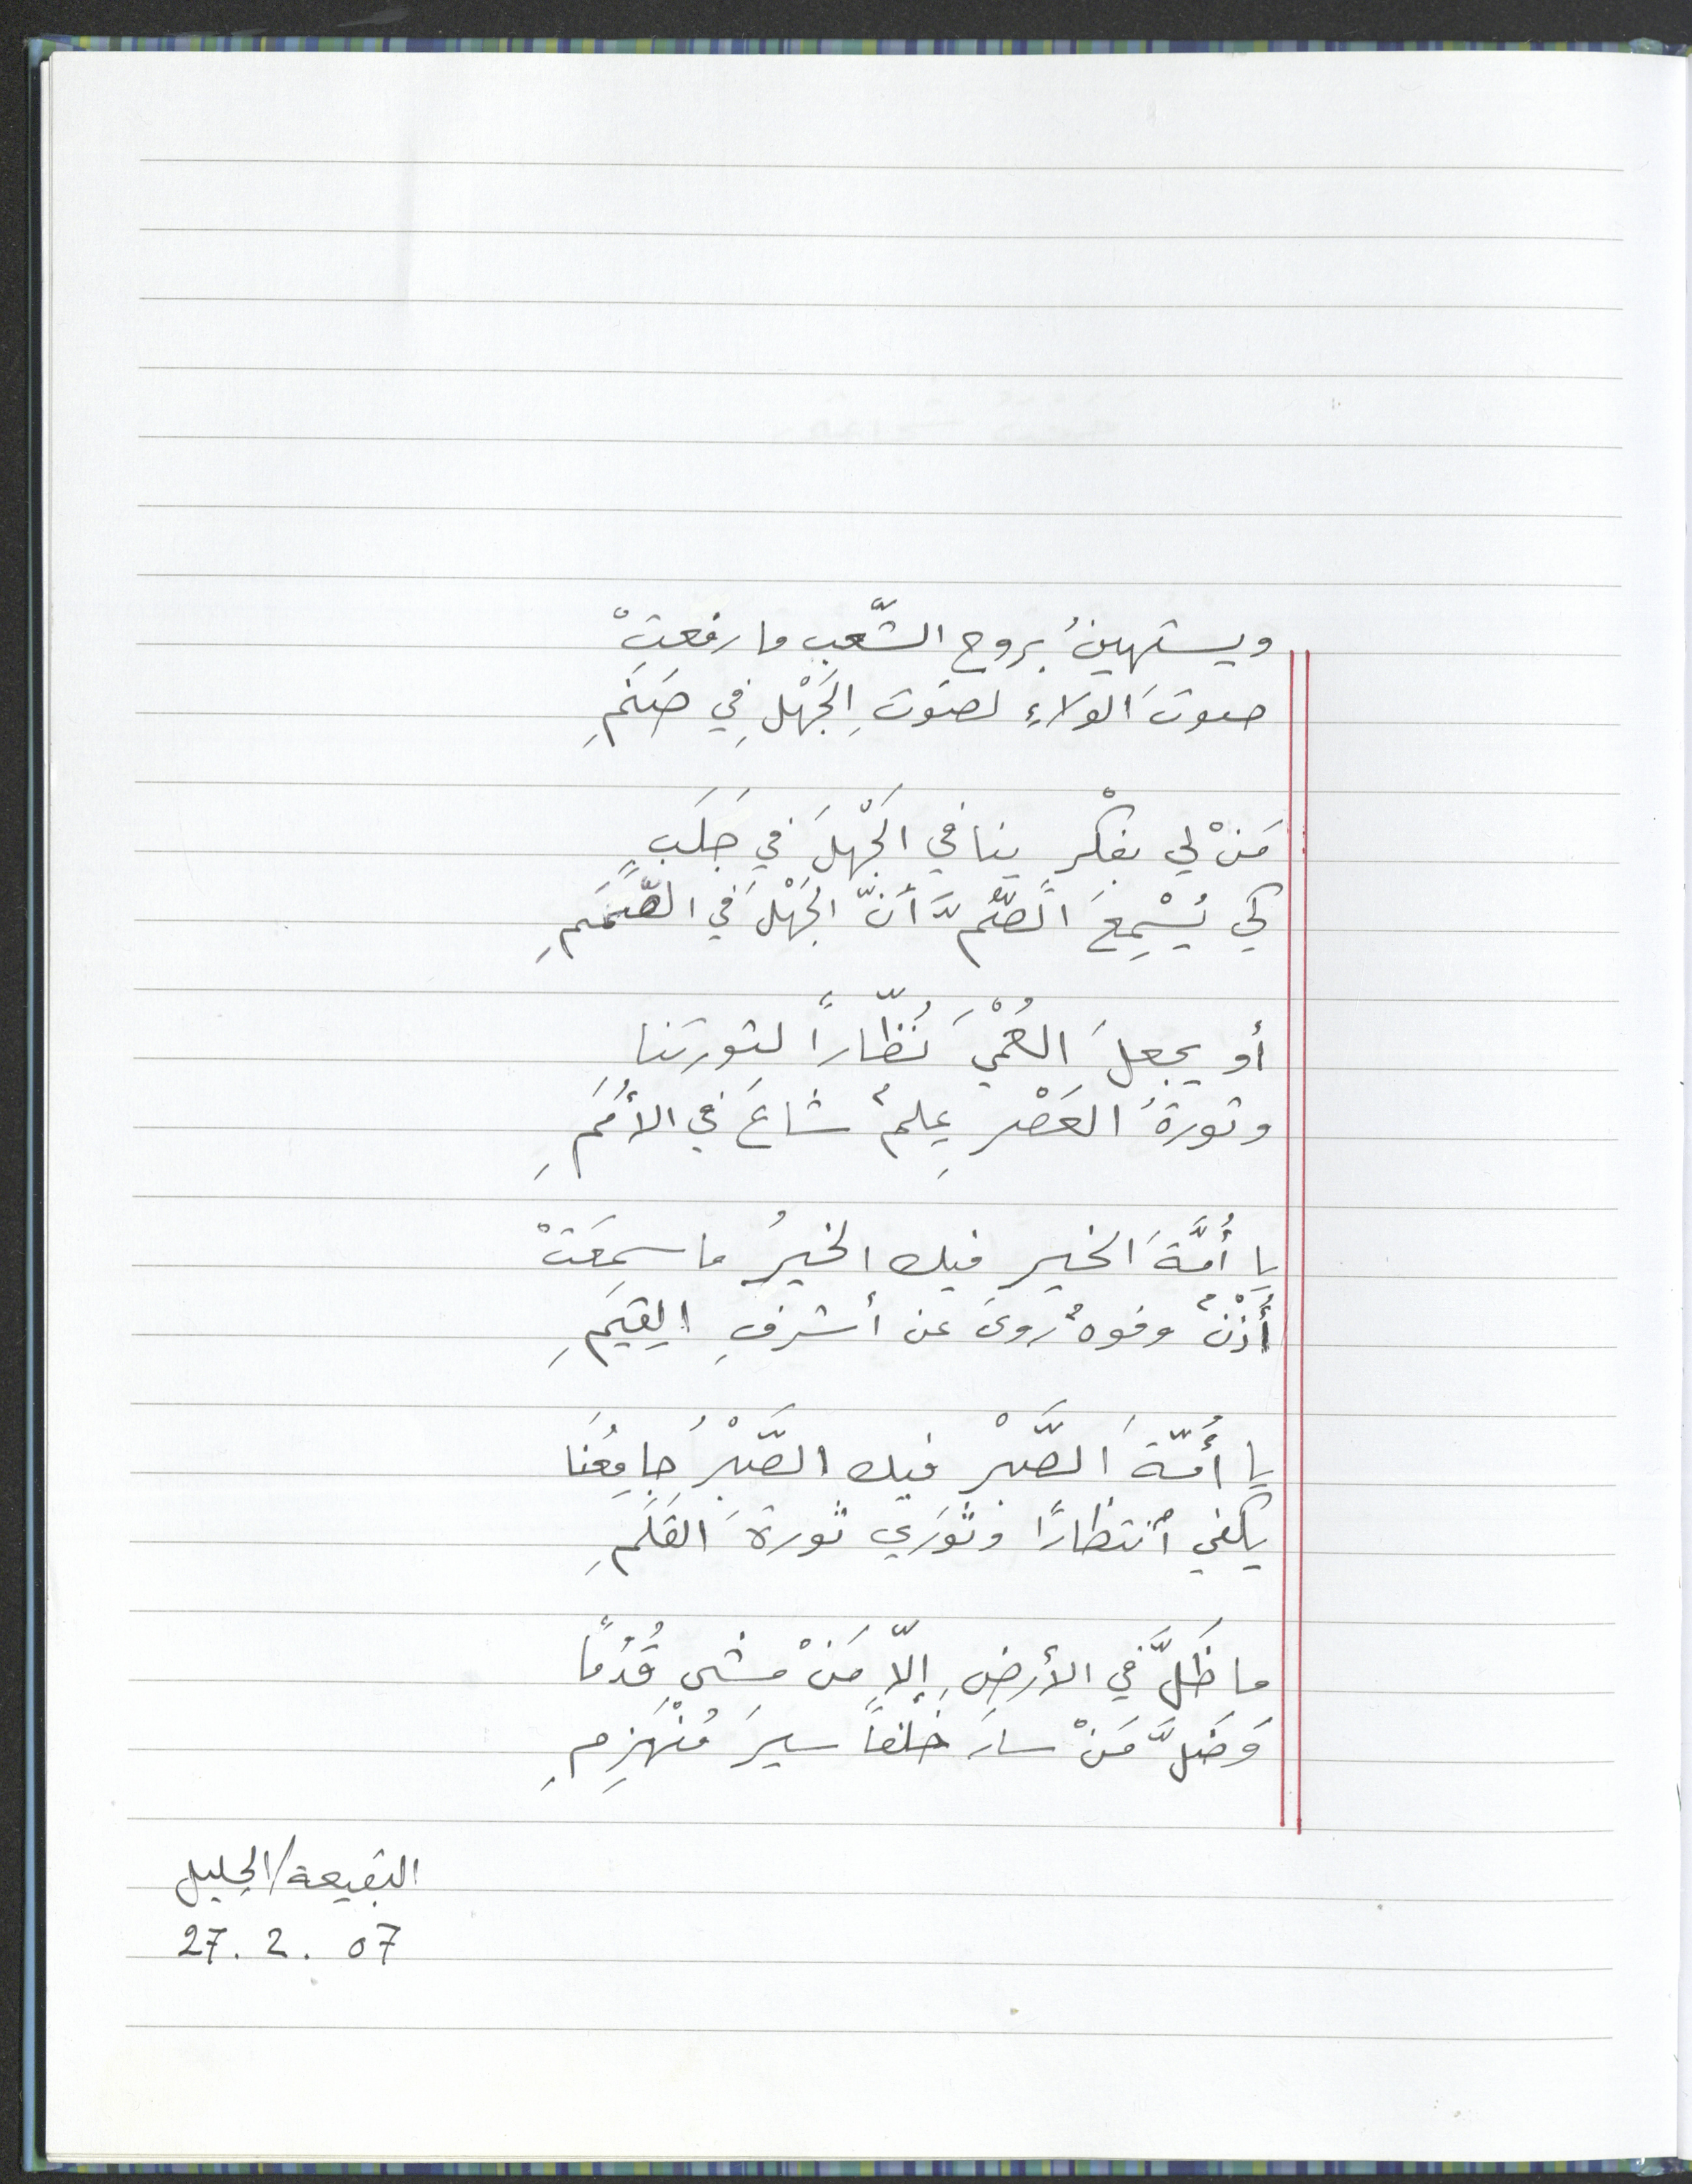 ويستهينُ بروح الشّعب ما رفعتْ
صوتَ الولاءِ لصَوتِ الجَهْلِ في صَنَمِ
مَنْ لي بفكْرٍ ينافي الجَهْلَ في جَلَبٍ
كي يُسْمِعَ الصُّمَّ أنّ الجَهْلَ في الصَّمَمِ
أو يجعلَ العُمْيَ نُظّاراً لثورتنا
وثورةُ العَصْرِ علمٌ شاعَ في الأُمَمِ
يا أُمَّةَ الخير فيك الخيرُ ما سمِعَتْ
أُذْنٌ وفوهٌ روى عن أشرفِ القِيَمِ
يا أُمّةَ الصَّبْرِ فيك الصَّبْرُ جامِعُنَا
يكفي اُنتظارًا وثوري ثورةَ القَلَمِ
ما ظَلَّ في الأرضِ إلّا مَنْ مشى قُدُمًا
وَضَلَّ مَنْ سارَ خلفاً سيرَ مُنْهَزِمِ
البقيعة/الجليل
27. 2. 07